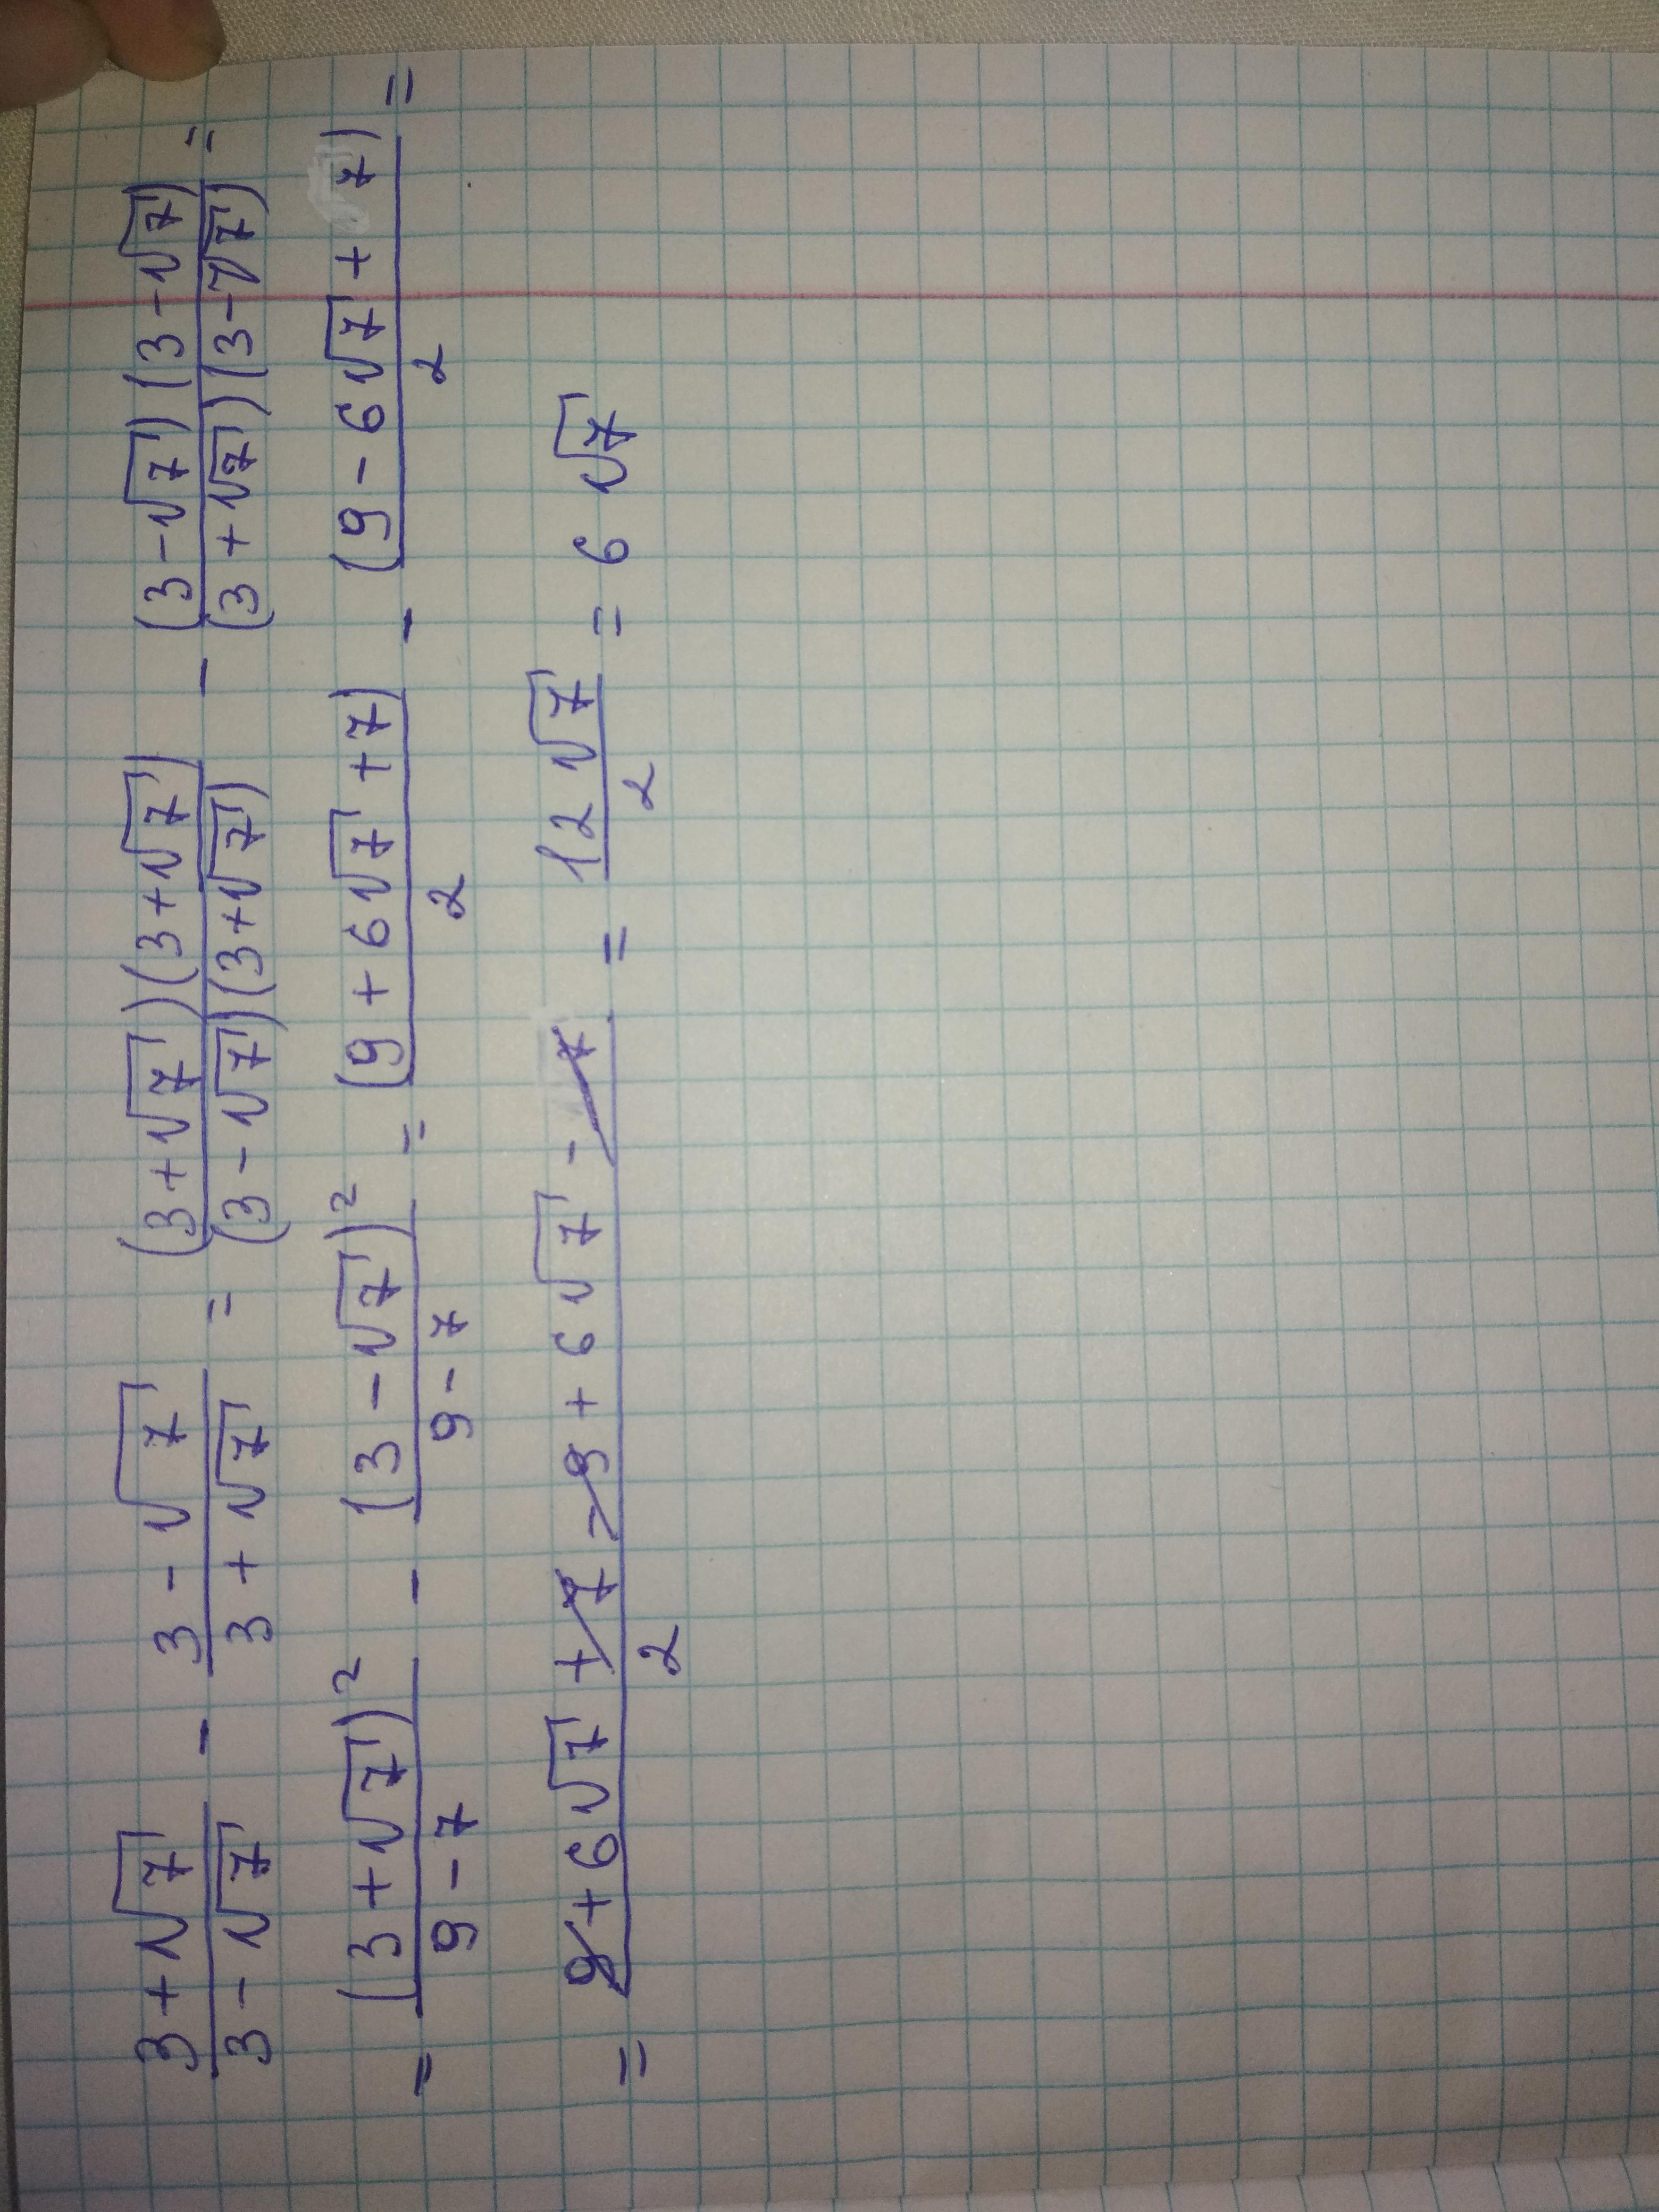 (3+√7)/(3-√7) - (3-√7)/(3+√7) = ((3+√7)(3+√7))/((3-√7)(3+√7)) - ((3-√7)(3-√7))/((3+√7)(3-√7)) =
= (3+√7)²/(9-7) - (3-√7)²/(9-7) = (9+6√7+7)/2 - (9-6√7+7)/2 =
= (9+6√7+7-9+6√7-7)/2 = 12√7/2 = 6√7